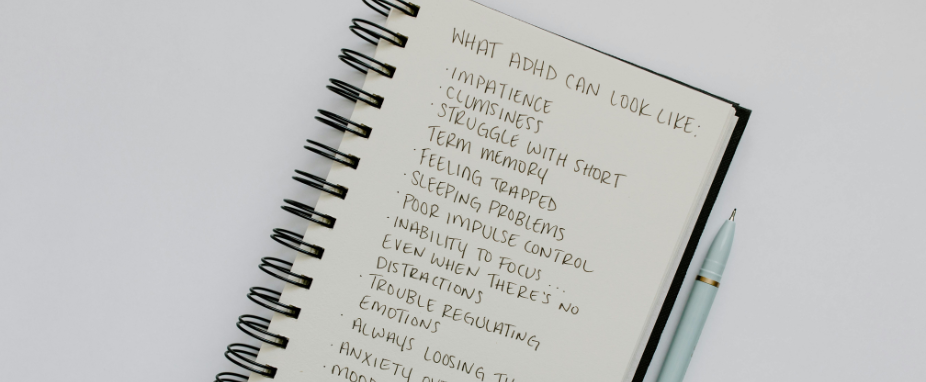 WHAT ADHD CAN LOOK LIKE:
· IMPATIENCE
· CLUMSINESS
· STRUGGLE WITH SHORT
TERM MEMORY
· FEELING TRAPPED
· SLEEPING PROBLEMS
· POOR IMPULSE CONTROL
· INABILITY TO FOCUS ....
EVEN WHEN THERE'S NO
DISTRACTIONS
· TROUBLE REGULATING
EMOTIONS
· ALWAYS LOOSING
· ANXIETY